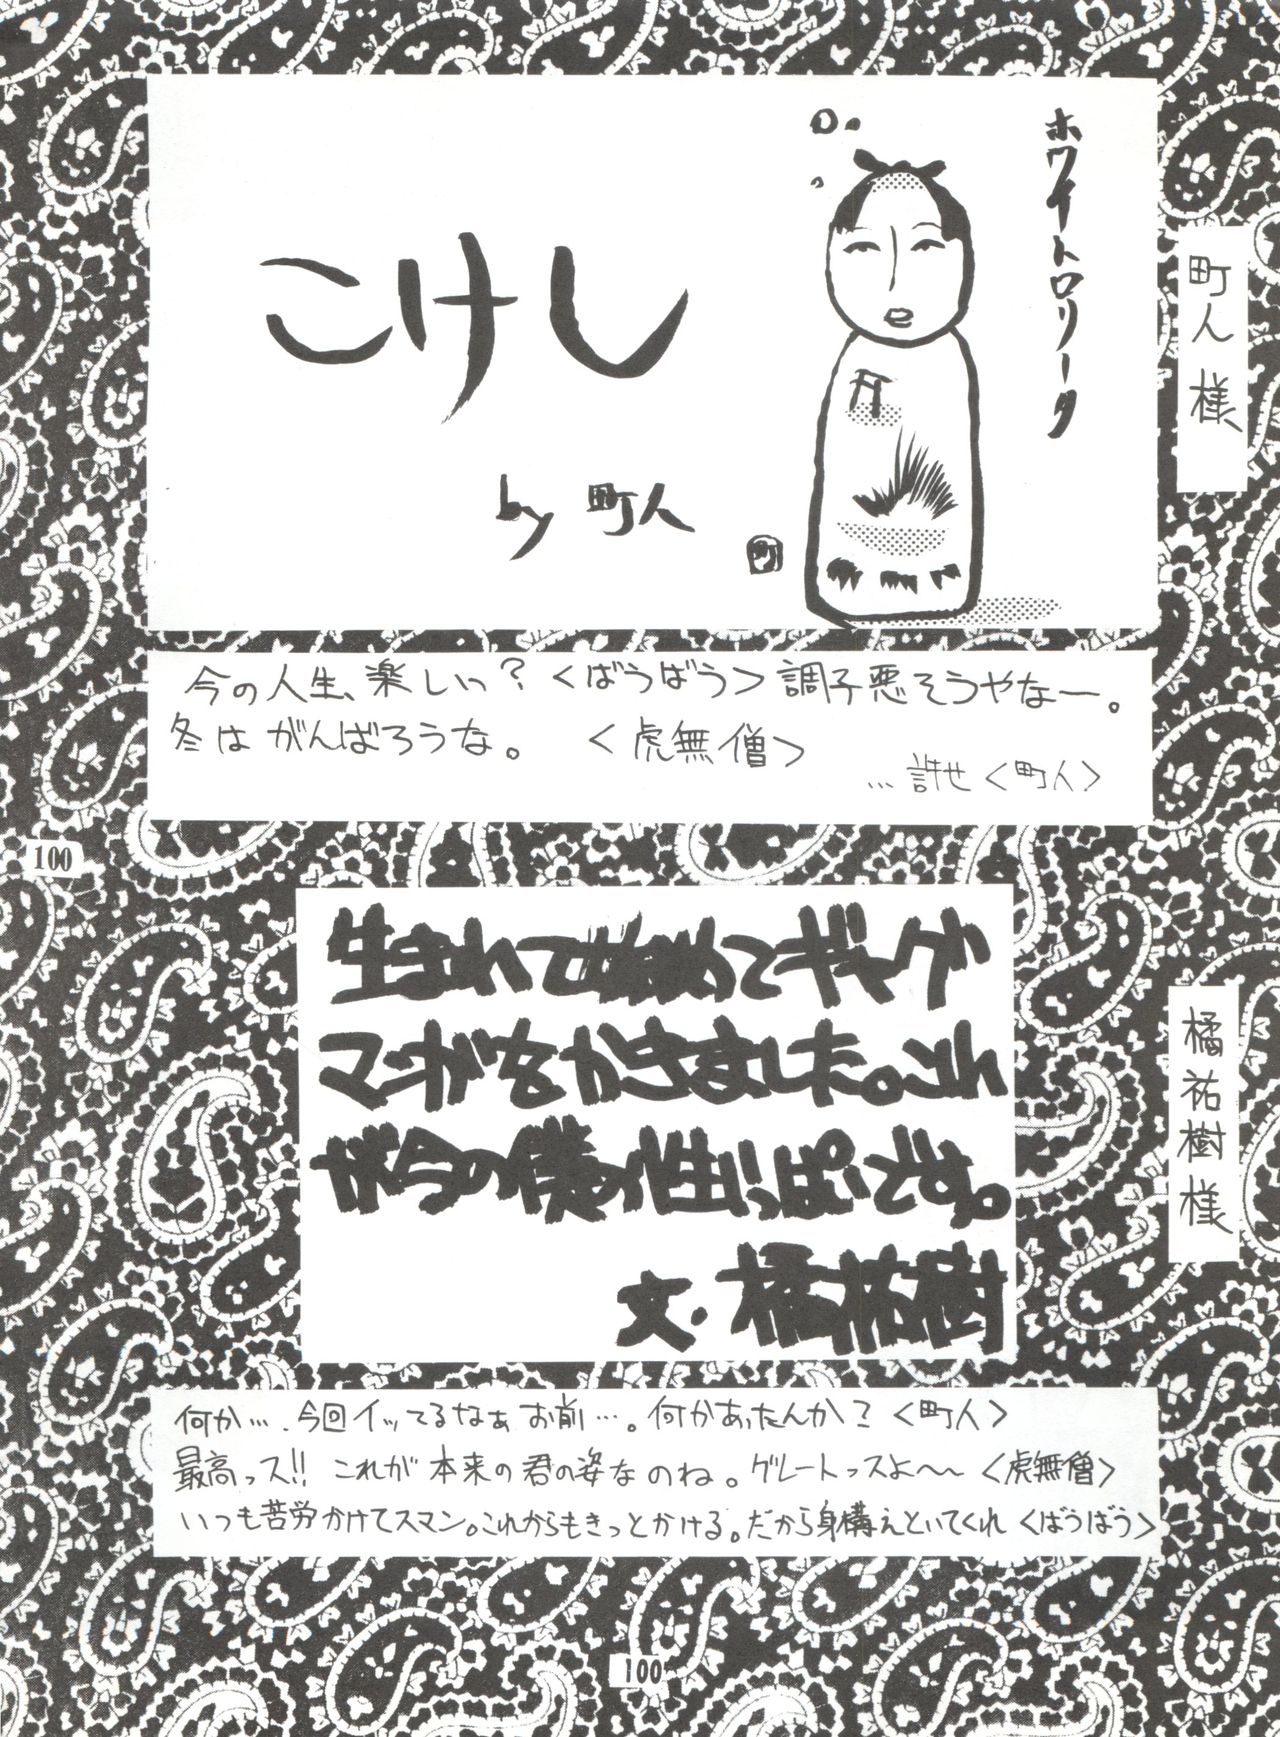 町人様
ホワイトロリータ
こけし
by 町人
町
今の人生、楽しい？〈ばうばう〉調子悪そうやなー。
冬はがんばろうな。　〈虎無僧〉
…許せ〈町人〉
100
橘祐樹様
生まれて初めてギャグ
マンガをかきました。
今の僕の人生っぽいです。
文・橘祐樹
何か…．今回イッてるなぁお前…。何かあったんか？〈町人〉
最高っス!!これが本来の君の姿なのね。グレートっスよ〜〜〈虎無僧〉
いつも苦労かけてスマン。これからもきっとかける。だから身構えといてくれ〈ばうばう〉
100